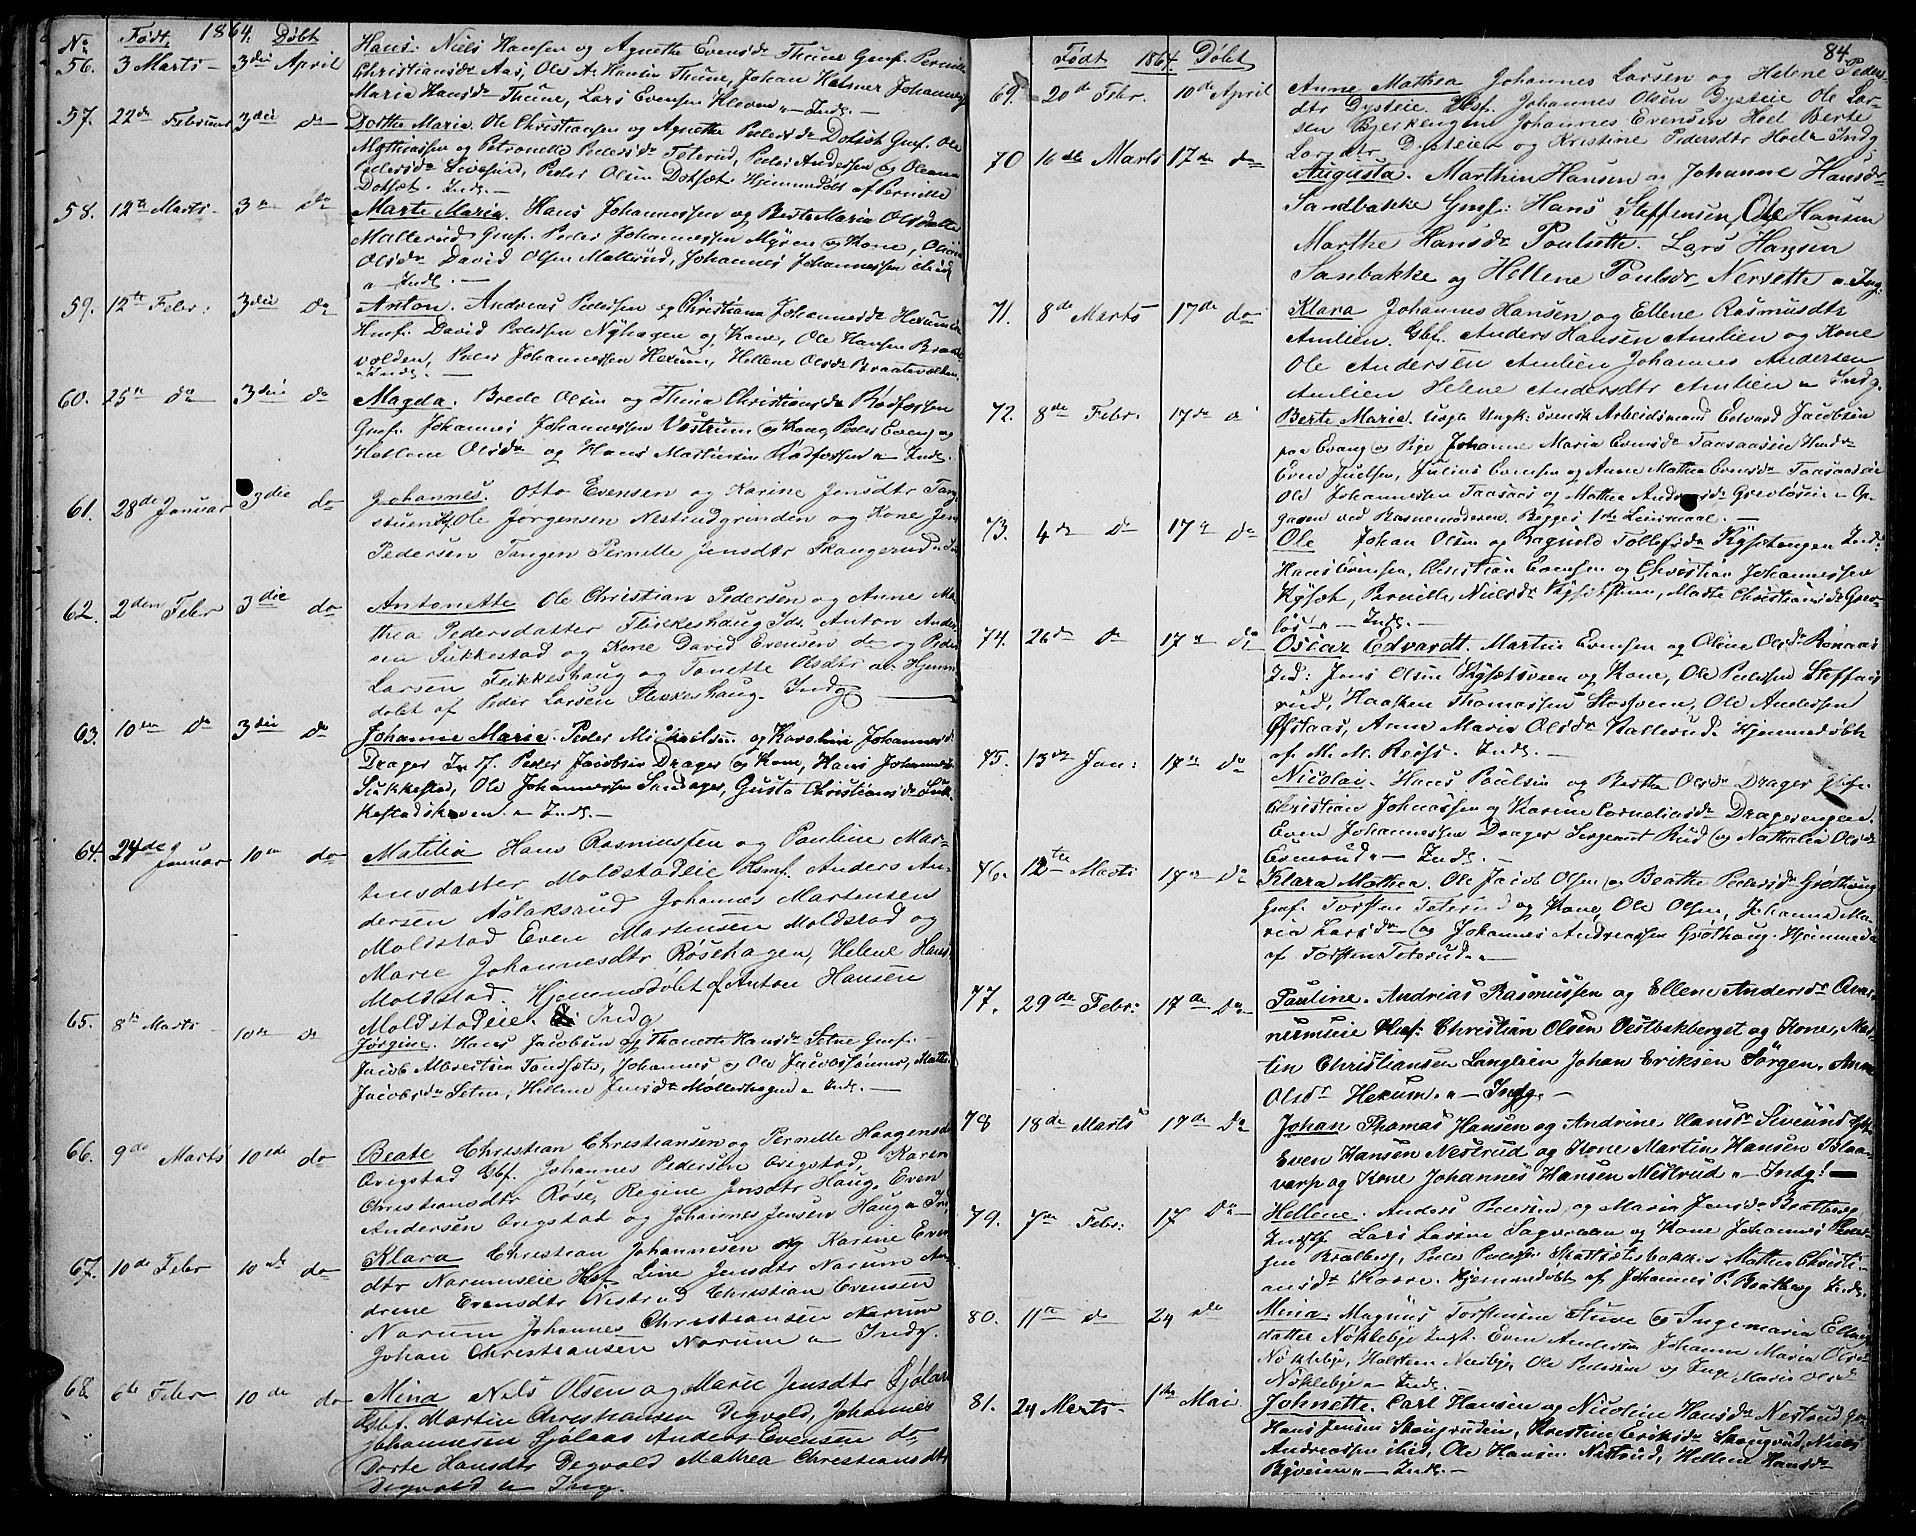 No Født 1864. Døbt
56. 3 Marts 3die April Hans: Niels Hansen og Agnethe Evensdr Thune Gmf. Pernille
Christiansdr Aas, Ole A. Hansen Thune, Johan Helmer Johannes
Maria Hansdr Thune, Lars Evensen Kleven Indg.
57. 22de Februar 3die do Dorthe Maria. Ole Christiansen og Agnethe Pedersdr Dotset Gmf. Ole
Mathiassen og Petronelle Pedersdr Teterud, Peder Andersen og Oleanna
Pedersdr Sivesind, Peder Olsen Dotsæt. Hjemmedøbt af Pernille
Dotsæt. Indg.
58. 12te Marts 3 do Marte Maria. Hans Johannessen og Berte Maria Olsdatter
Mallerud Gmf. Peder Johannessen Myren og Kone, Oline
Olsdr David Olsen Mallerud, Johannes Johannessen ibid
Indg.
59. 12te Febr: 3die do Anton. Andreas Pedersen og Christiana Johannesdr Hexum
Hmf. David Pedersen Nyhagen og Kone, Ole Hansen Braate
volden, Peder Johannessen Hexum, Hellene Olsdr Braatevolden.
Indg.
60. 25 do 3die do Magda. Brede Olsen og Thina Christiansdr Rødfossen
Gmf. Johannes Johannessen Vestrum og Kone, Peder Evang og
Hellene Olsdr og Hans Martinsen Rødfossen Indg.
61. 28de Januar 3die do Johannes. Otto Evensen og Karine Jensdtr Tang
stuen Ole Jørgensen Nestrudgrinden og Kone Jens
Pedersen Tangen Pernille Jensdtr Skangerud
62. 2den Febr 3die do Antonette Ole Christian Pedersen og Anne Ma
thea Pedersdatter Flikkeshaug Ids. Anton Ander
sen Sukkestad og Kone David Evensen do og Peder
Larsen Flikkeshaug og Tonette Olsdtr Hjemme
døbt af Peder Larsen Flikkeshaug. Indg
63. 10de do 3die do Johanne Marie. Peder Michelsen og Karoline Johannesd.
Drager Peder Jacobsen Drager og Kone, Hans Johannes
Sukkestad, Ole Johannessen Sandager, Gusta Christiansdr Suk
kestadskoven. Indg.
64. 24de Januar 10 do Matilia Hans Rasmussen og Pauline Mar-
tinsdatter Moldstadeie Hsmf. Anders An-
dersen Aslaksrud Johannes Martinsen
Moldstad Even Martinsen Moldstad og
Marie Johannesdtr Røsehagen, Helene Hans
Moldstad. Hjemmedøbt af Anton Hansen
Moldstadeie. Indg
65. 8de Marts 10 do Jørgine. Hans Jacobsen og Thonette Hansdr Setne Gmf.
Jacob Albertsen Tandsæte, Johannes og Ole Jacobssønner, Mathe
Jacobsdr Setne, Hellene Jensdr Mollerhagen Indg.
66. 9de Marts 10de do Beate Christian Christiansen og Pernille Haagensd
Evigstad Gbf. Johannes Pedersen Evigstad Karen
Christiansdtr Røse, Regine Jensdtr Haug, Even
Andersen Evigstad og Johannes Jensen Haug
67. 10de Febr 10de do Klara Christian Johannesen og Karine Even
dtr Narumseie Hsf Line Jensdtr Narum An
drine Evensdtr Nestrud Christian Evensen
Narum Johannes Christiansen Narum
Johan Christiansen Narum Indg.
68. 6te Febr 10de do Mina Nils Olsen og Marie Jensdtr Sjølaas
Gbf. Martin Christiansen Degvold, Johannes
Johannesen Sjølaas Anders Evensen do
Dorte Hansdtr Degvold Mathea Christiansdtr
Degvold Indg.
84.
Født 1864 Døbt
69. 20de Febr. 10de April Anne Mathea Johannes Larsen og Helene Peders
dtr Dysteie Hsf. Johannes Olsen Dysteie Ole Lar-
sen Bjerkengen Johannes Evensen Hoel Berte
Larsdtr Dysteie og Kristine Pedersdtr Hoel Indg
70 16de Marts 17de do Augusta. Marthin Hansen Johanne Hansdr
Sandbakke Gmf: Hans Steffensen, Ole Hansen
Marthe Hansdr Poulsette. Lars Hansen
Sanbakke og Hellene Poulsdr Nersette Indg.
71. 8de Marts 17de do Klara Johannes Hansen og Ellene Rasmusdtr
Amlien. Gbf. Anders Hansen Amlien og Kone
Ole Andersen Amlien Johannes Andersen
Amlien Helene Andersdtr Amlien Indg.
72. 8de Febr. 17de d Berte Marie. Uægte Ungk: svensk Arbeidsmand Edvard Jacobsen
paa Evang og Pige Johanne Maria Evensdr Taasaaseie Indr
Even Juelsen, Julius Evensen og Anne Mathea Evensdr Taasaaseie
Ole Johannessen Taasaas og Mathea Andreasdr Grevløseie Op-
gaven ved Barnemoderen. Begges 1ste Leiermaal.
73. 4de D 17 Do Ole Johan Olsen og Ragnild Tollefsdr Kysetengen Inds:
Hans Evensen, Christian Evensen og Christian Johannessen
Kyset, Pernille Nielsdr Kysetstuen, Marthe Christiansdr Grev-
løs. Indg.
74. 26de D 17 Do Oscar Edvardt. Martin Evensen og Oline Olsdr Rønaas
Ind: Jens Olsen Kysætsveen og Kone, Ole Pedersen Steffens
rud, Haaken Thomassen Stosveen, Ole Andersen
Østaas, Anne Maria Olsdr Kallerud. Hjemmedøbt
af M. M. Reiss. Indg.
75. 13de Jan: 17 Do Nicolai. Hans Poulsen og Berthe Olsdr Drager
Christian Johnassen og Karine Corneliusdr Dragerengen.
Even Johannessen Drager Sergeant Rud og Nathalia Olsdr
Evenrud. Indg.
76. 12te Marts 17 Do Klara Mathea. Ole Jacob Olsen og Beathe Pedersdr Grøthaug
Gmf. Torsten Teterud og Kone, Ole Olsen, Johanne Ma-
ria Larsdr og Johannes Andreassen Grøthaug. Hjemmed.
af Torsten Teterud.
77. 29de Febr: 17de Do Pauline. Andrias Rasmussen og Ellene Andersdr
numseie Hmf: Christian Olsen Oestbakberget og Kone, Mar
tin Christiansen Langlien Johan Eriksen Sörgen. Anne
Olsdr Hexum. Indg.
78 18de Marts 17de Do Johan Thomas Hansen og Andrine Hansdr Sivesind
Even Hansen Nestrud og Kone Martin Hansen Blaa
varp og Kone Johannes Hansen Nestrud Indg!
79. 7de Febr: 17 Do Hellene. Anders Pedersen og Maria Jensdr Bratberg
Indstf. Lars Larsen Sagvolden og Kone Johannes Peder-
sen Bratberg, Peder Pedersen Skattsetsbakken Mathea Christi-
ansdr Skarre. Hjemmedøbt af Johannes P. Bratberg Indg.
80. 11te d 24 do Mina. Magnus Torstensen Stuve og Ingemaria Ellings
datter Nøklebye Indst. Even Andersen Johanne Maria Olsdr
Nøklebye, Halsten Nærbye, Ole Pedersen og Inge Maria Olsd
Nøklebye Indg.
81. 24 Marts 1ste Mai Johnette. Carl Hansen og Nicoline Hansdr Nestrud
Hans Jensen Skongrudeien, Kristine Eriksdr Skongrud, Niels
Andreassen ibid, Ole Hansen Nestrud, Hellene Hansdr
Byveien Indg.